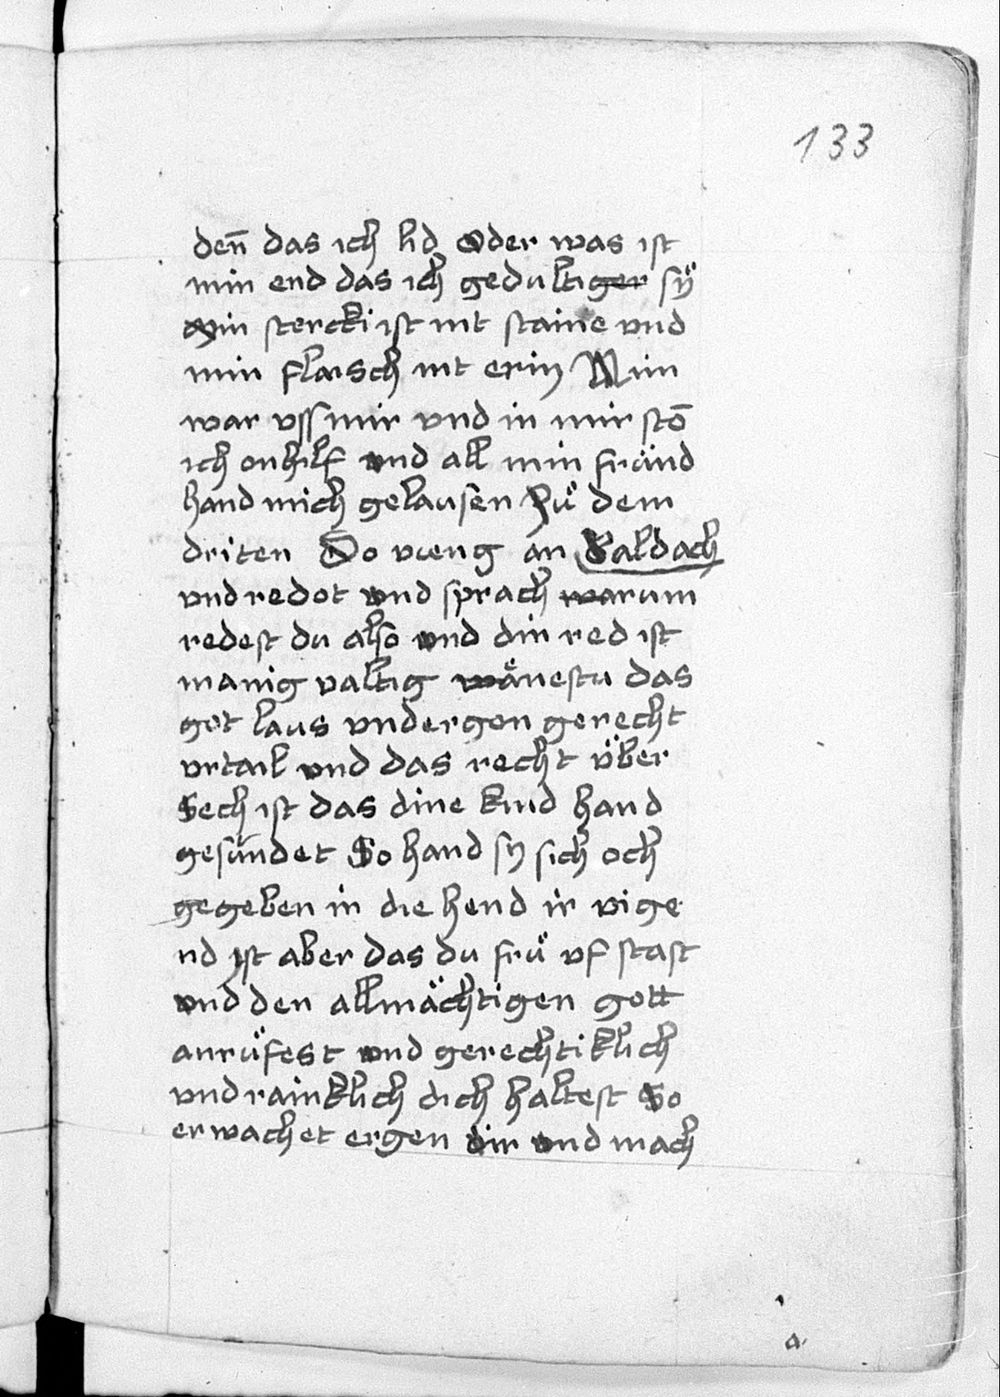 133
den̄ das ich lid Oder was ist
min end das ich gedultiger sÿ
Min stercki ist nit staine vnd
min flaisch nit erin Min
war vss mir vnd in mir stō
ich onhilf vnd all min fründ
hand mich gelausen zuͤ dem
driten Do vieng an Baldach
vnd redot vnd sprach warum
redest du also vnd din red ist
manig valtig wänestu das
got laus vndergon gerecht
vrtail vnd das recht über
Sech ist das dine kind hand
gesündet So hand sy sich och
gegeben in die hend ir vige
nd ist aber das du frü vf stast
vnd den allmächtigen gott
anrüfest vnd gerechtiklich
vnd rainklich dich haltest So
erwachet ergen dir vnd mach
a